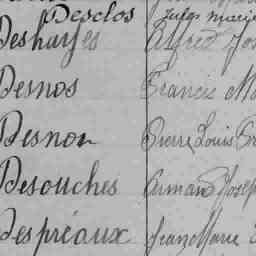 Desclos Jules Marie
Deshayes Alfred Jos
Desnos Francis Ma
Desnon Pierre Louis
Desouches Armand Josep
Despréaux Franc Marie